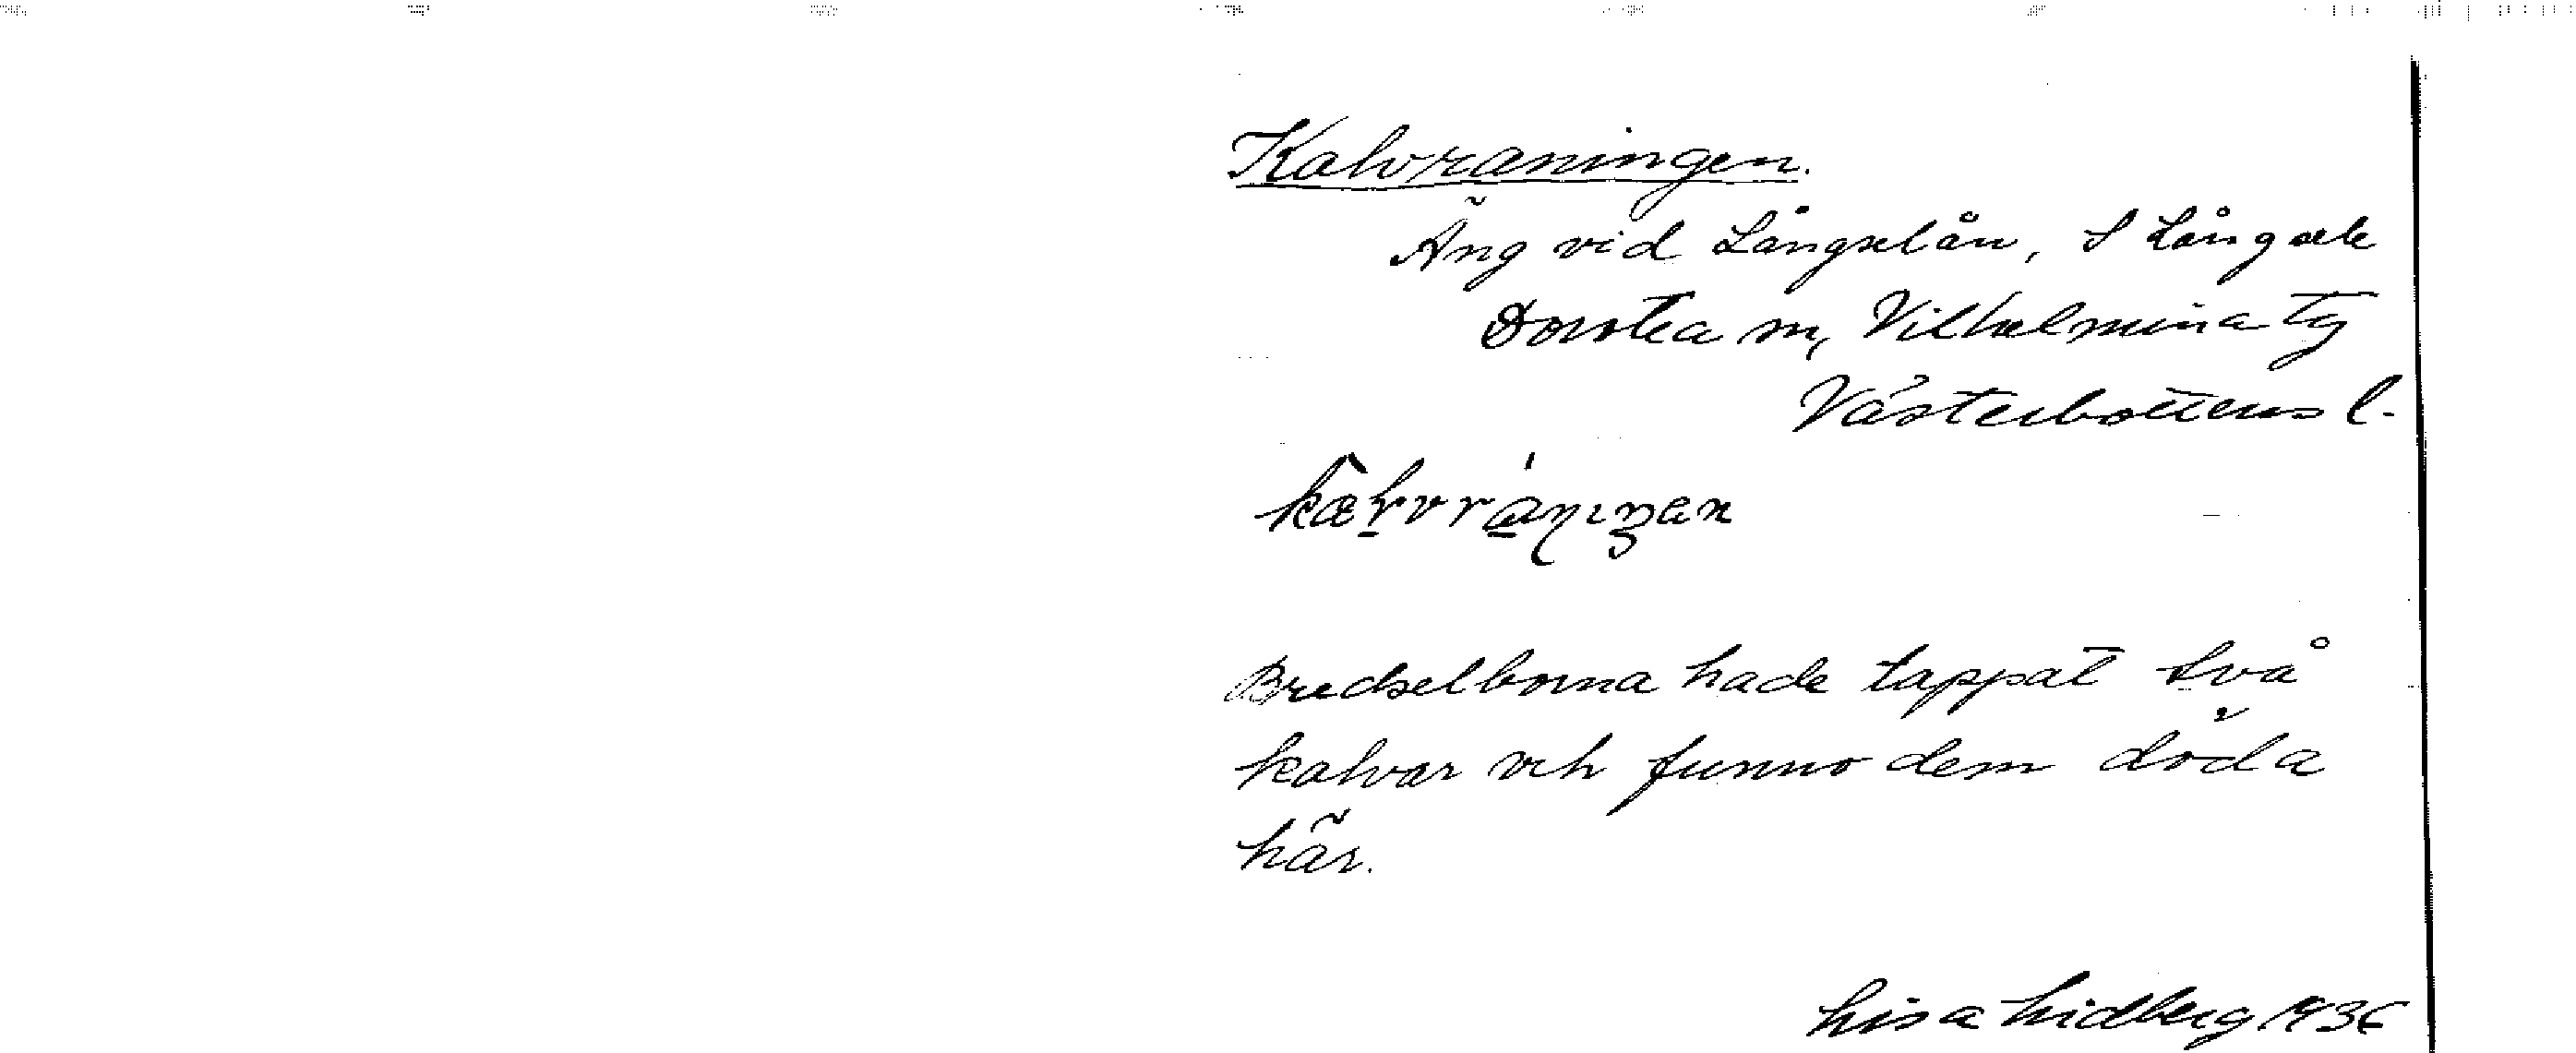 Kalvraningen.
Äng vid Långselån, S Långsele
Dorotea sn, Vilhelmina tg
Västerbottens l.
Bredselborna hade tappat två
kalvar och funno dem döda
här.
Lisa Lidberg 1936